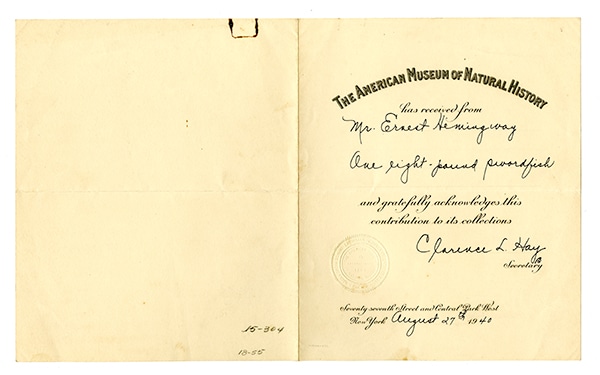 THE AMERICAN MUSEUM OF NATURAL HISTORY
has received from
Mr. Ernest Hemingway
One eight-pound swordfish
and gratefully acknowledges this
contribution to its collections
Clarence L. Hay
Secretary
Seventy seventh Street and Central Park West
New York August 27th 1940
15-304
18-55